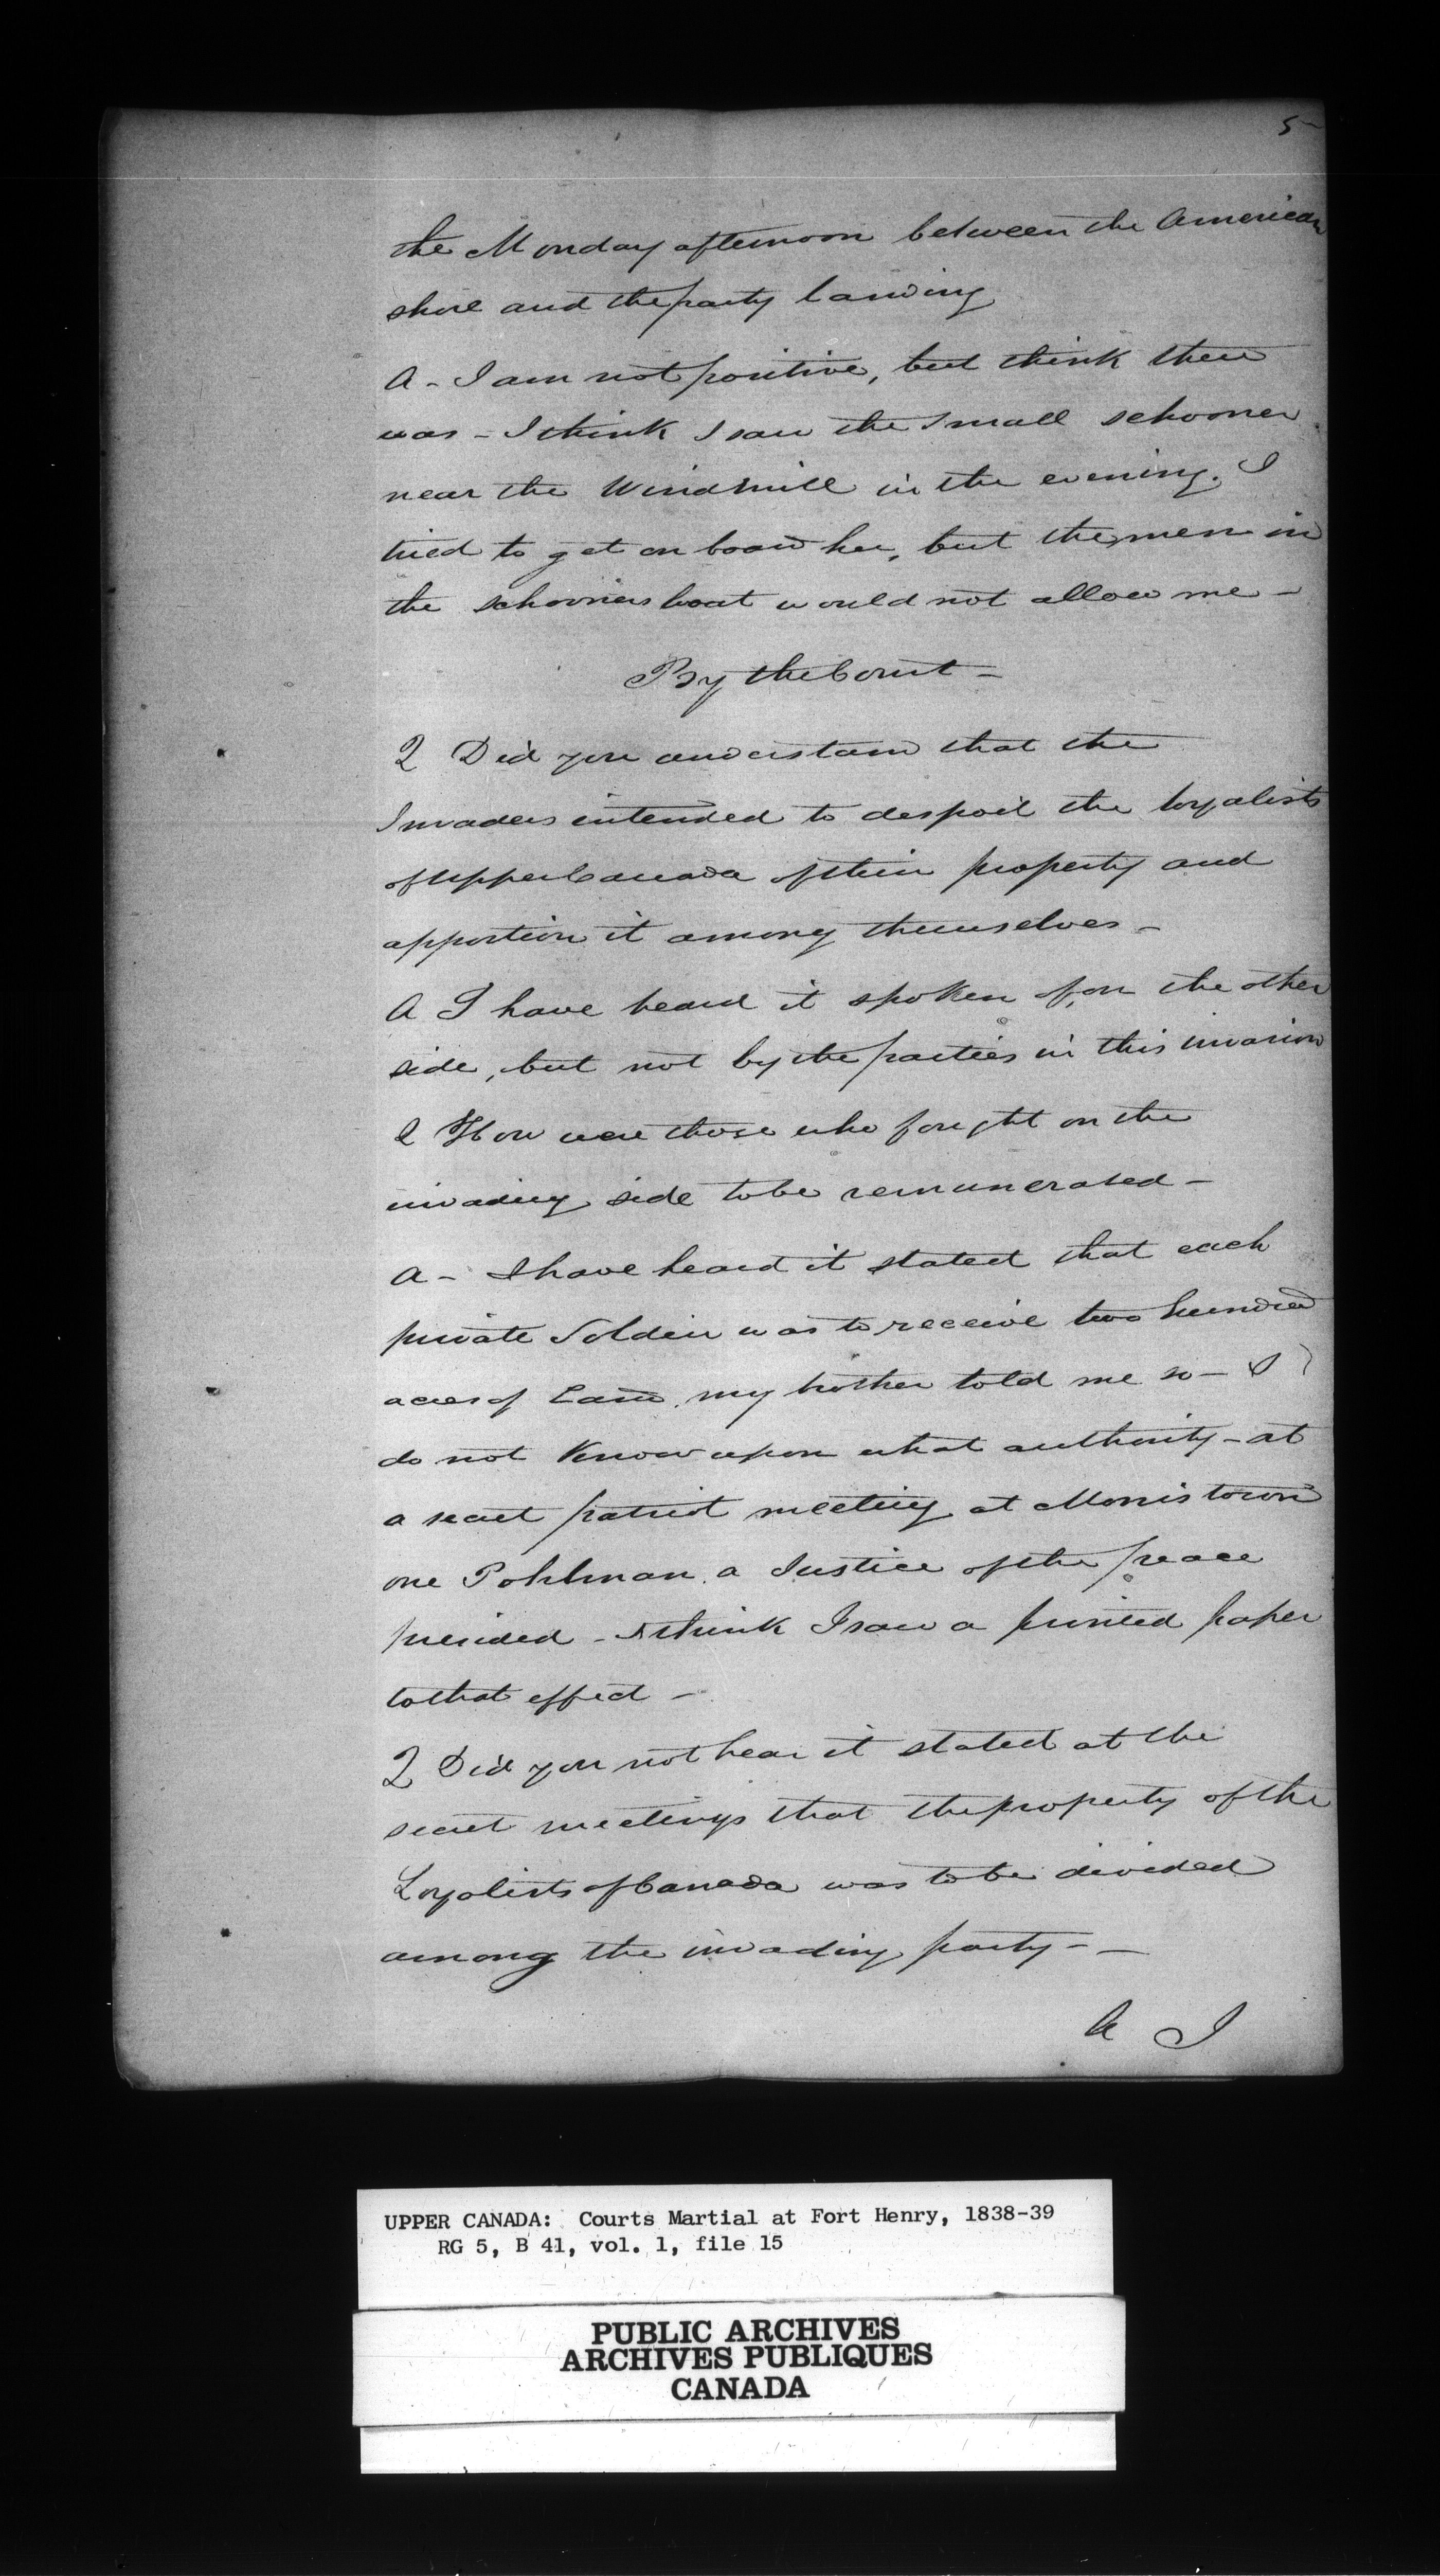 5
the Monday afternoon between the American
shore and the party landing
A - I am not positive, but think there
was - I think I saw the small schooner
near the Windmill in the evening. I
tried to get on board her, but the men in
the schooners boat would not allow me -
By the Court -
Q Did you understand that the
Invaders intended to despoil the loyalists
of Upper Canada of their property and
apportion it among themselves -
A I have heard it spoken of, on the other
side, but not by the parties in this invasion
Q How were those who fought on the
invading side to be remunerated -
A - I have heard it stated that each
private Soldier was to receive two hundred
acres of Land, my brother told me so - I
do not Know upon what authority - at
a secret patriot meeting at Morristown
one Pohlman, a Justice of the peace
presided - I think I saw a printed paper
to that effect -
Q Did you not hear it stated at the
secret meetings that the property of the
Loyalists of Canada was to be divided
among the invading party - -
A I
UPPER CANADA: Courts Martial at Fort Henry, 1838-39
RG 5, B 41, vol. 1, file 15
PUBLIC ARCHIVES
ARCHIVES PUBLIQUES
CANADA